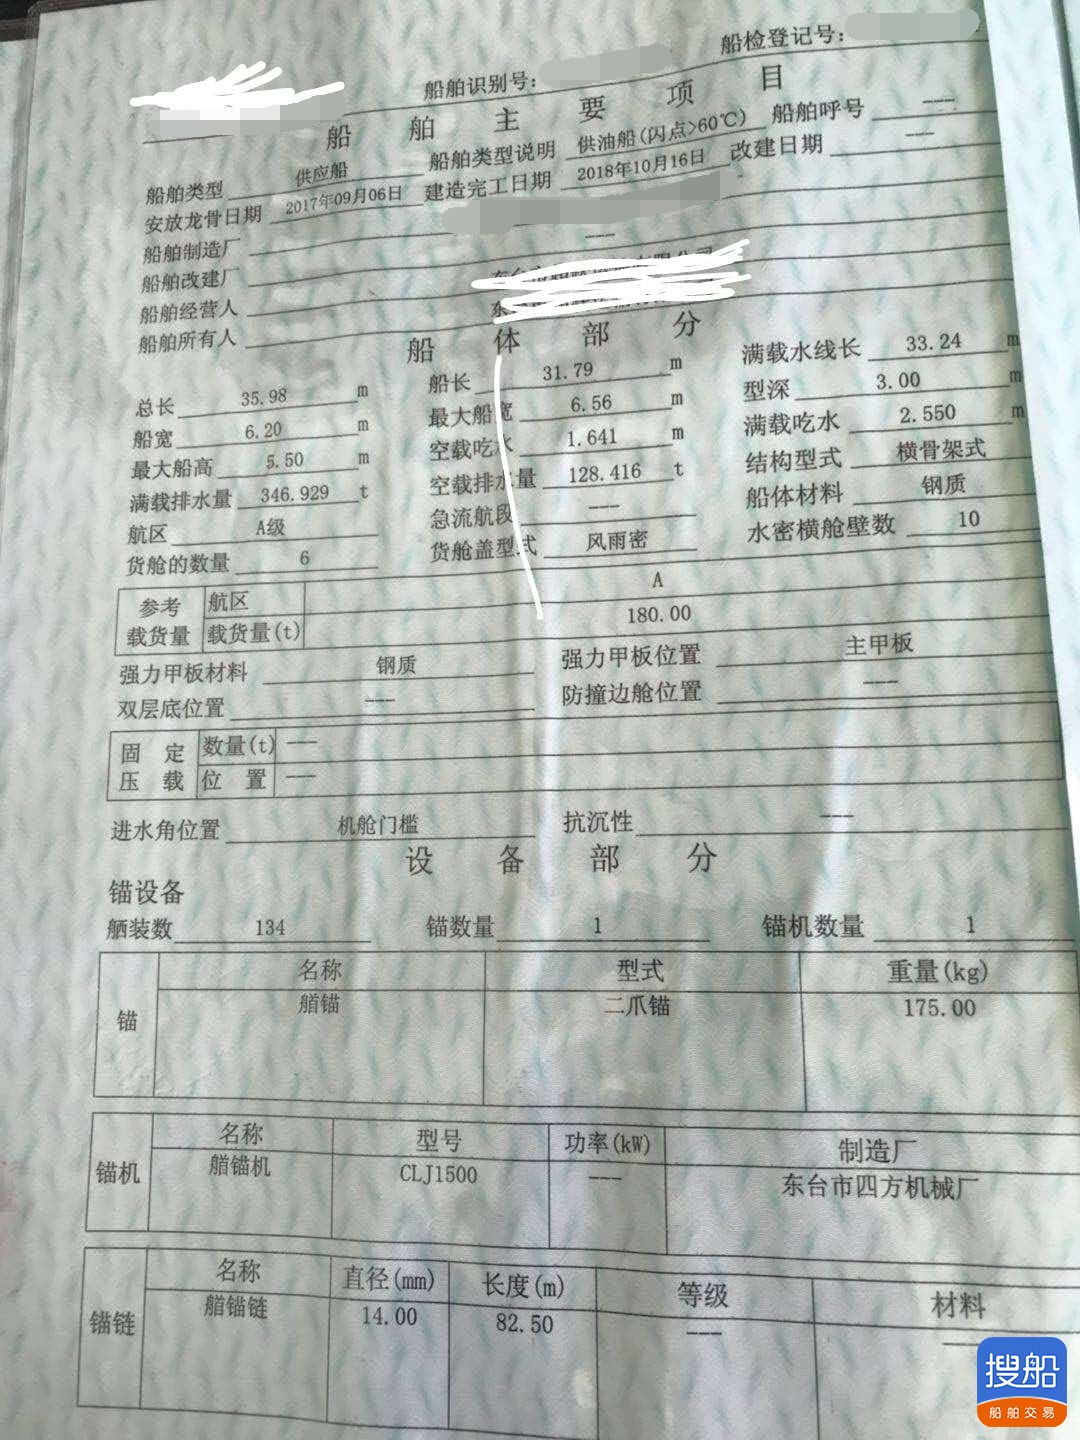 船舶识别号:
船检登记号:
船舶主要项目
船舶类型 供应船 船舶类型说明 供油船(闪点>60℃) 船舶呼号 ---
安放龙骨日期 2017年09月06日 建造完工日期 2018年10月16日 改建日期 ---
船舶制造厂
船舶改建厂 ---
船舶经营人
船舶所有人
船体部分
总长 35.98 m 船长 31.79 m 满载水线长 33.24 m
船宽 6.20 m 最大船宽 6.56 m 型深 3.00 m
最大船高 5.50 m 空载吃水 1.641 m 满载吃水 2.550 m
满载排水量 346.929 t 空载排水量 128.416 t 结构型式 横骨架式
航区 A级 急流航段 --- 船体材料 钢质
货舱的数量 6 货舱盖型式 风雨密 水密横舱壁数 10
参考载货量 航区 A
载货量(t) 180.00
强力甲板材料 钢质 强力甲板位置 主甲板
双层底位置 --- 防撞边舱位置 ---
固定压载 数量(t) ---
位置 ---
进水角位置 机舱门槛 抗沉性 ---
设备部分
锚设备
舾装数 134 锚数量 1 锚机数量 1
锚 名称 型式 重量(kg)
艏锚 二爪锚 175.00
锚机 名称 型号 功率(kW) 制造厂
艏锚机 CLJ1500 --- 东台市四方机械厂
锚链 名称 直径(mm) 长度(m) 等级 材料
艏锚链 14.00 82.50 --- ---
搜船
船舶交易